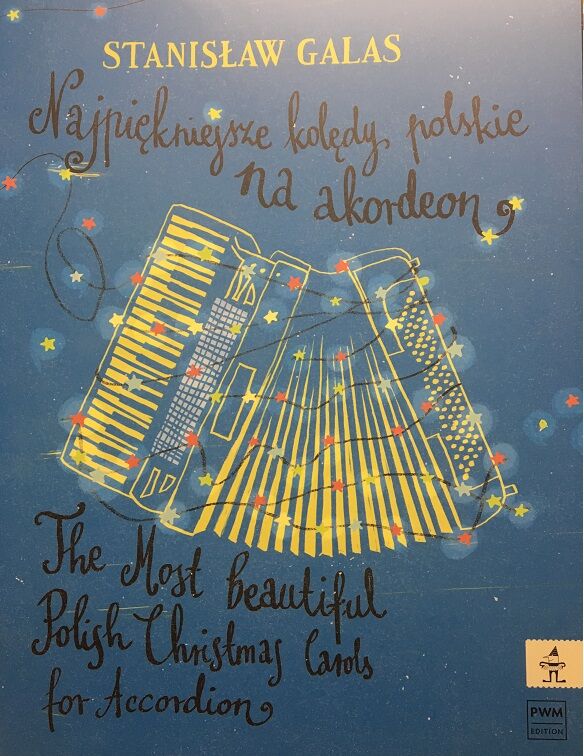 STANISŁAW GALAS
Najpiękniejsze kolędy polskie
na akordeon
The Most beautiful
Polish Christmas Carols
for Accordion
PWM
EDITION